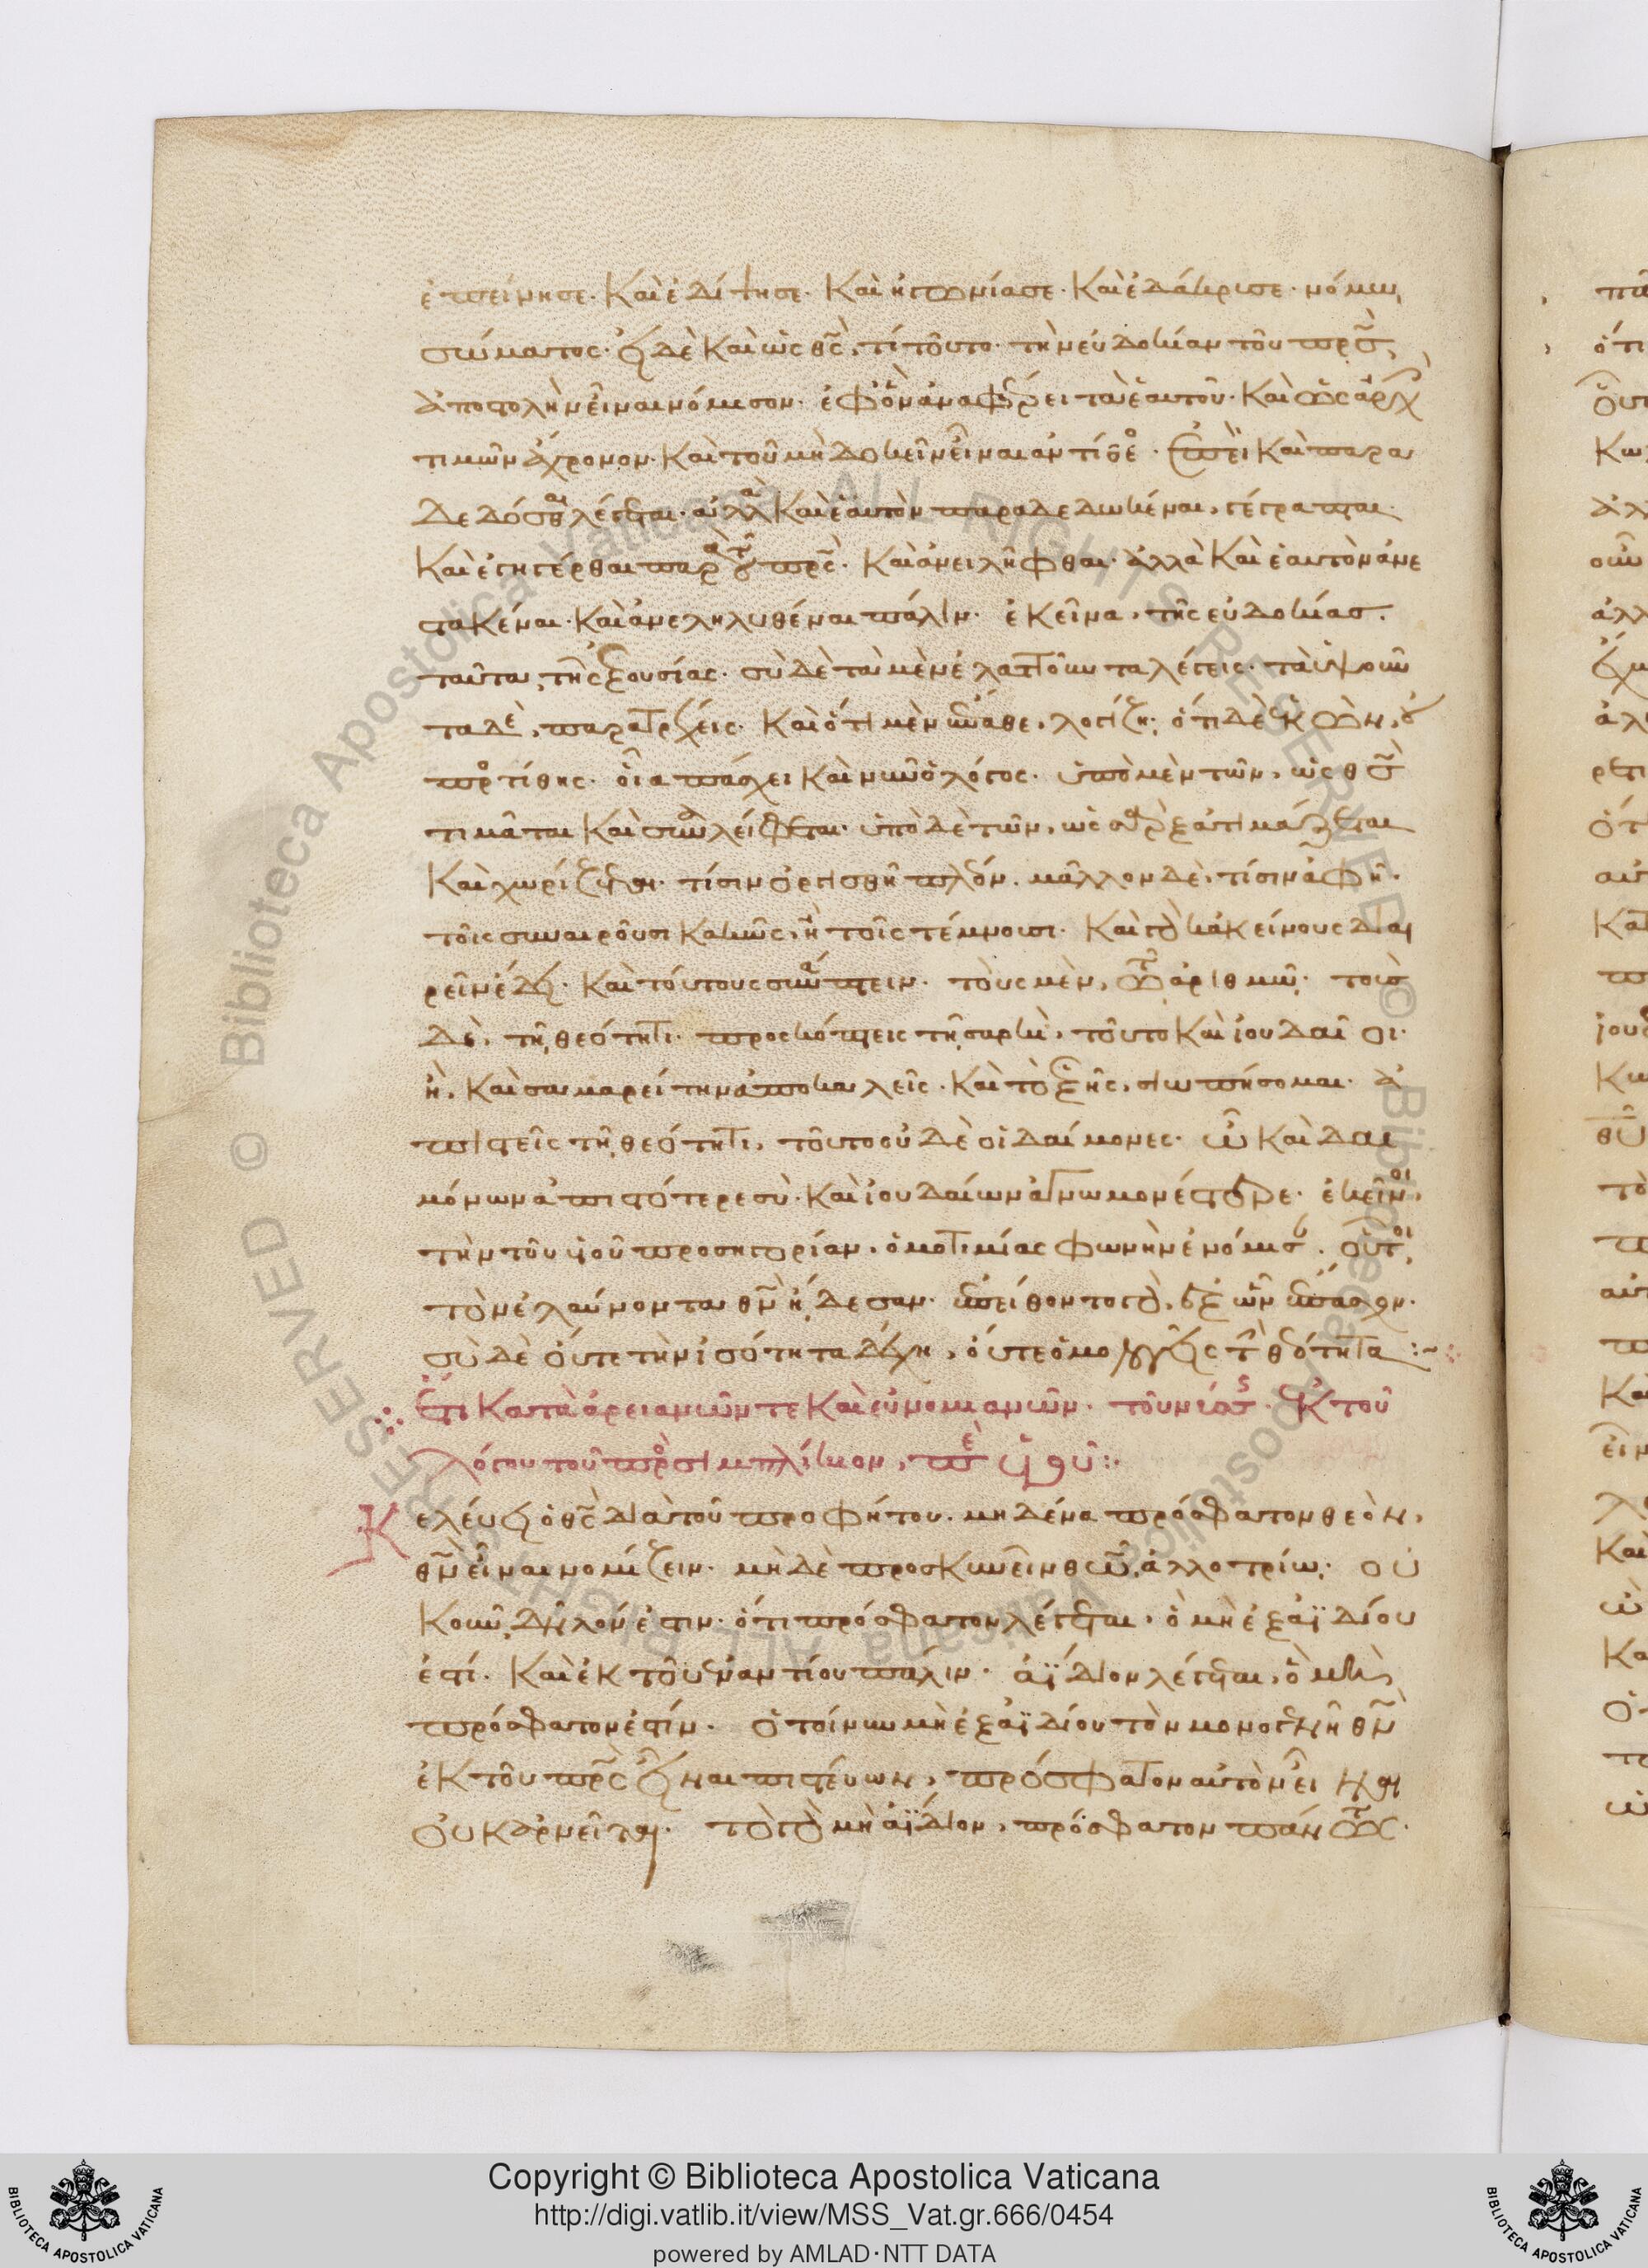 ἐπείνησε· καὶ ἐδίψησε· καὶ ἠγωνίασε· καὶ ἐδάκρυσε· νόμῳ
σώματος· εἰ δὲ καὶ ὡς θς̅, τί τοῦτο· τὴν εὐδοκίαν τοῦ πρς̅,
ἀποστολὴν εἶναι νόμισον· ἐφ' ὃν ἀναφέρει τὰ ἑαυτοῦ· καὶ ὡς ἀρχὴν
τιμῶν ἄχρονον· καὶ τοῦ μὴ δοκεῖν εἶναι ἀντίθεος· ἐπεὶ καὶ παρα
δεδόσθαι λέγεται· ἀλλὰ καὶ ἑαυτὸν παραδεδωκέναι, γέγραπται·
καὶ ἐγηγέρθαι παρὰ τοῦ πρς̅· καὶ ἀνειλῆφθαι· ἀλλὰ καὶ ἑαυτὸν ἀνε
στακέναι· καὶ ἀνεληλυθέναι πάλιν· ἐκεῖνα, τῆς εὐδοκίας·
ταῦτα, τῆς ἐξουσίας· σὺ δὲ τὰ μὲν ἐλαττοῦντα λέγεις· τὰ ὑψοῦν
τα δὲ, παρατρέχεις· καὶ ὅτι μὲν ἔπαθε, λογίζῃ· ὅτι δὲ ἑκὼν, οὐ
προστίθης· οἷα πάσχει καὶ νῦν ὁ λόγος· ὑπὸ μὲν τῶν, ὡς θς̅
τιμᾶται καὶ συναλείφεται· ὑπὸ δὲ τῶν, ὡς σὰρξ ἀτιμάζεται
καὶ χωρίζεται· τίσιν ὀργισθῇ πλέον· μᾶλλον δὲ, τίσιν ἀφῇ·
τοῖς συναιροῦσι κακῶς, ἢ τοῖς τέμνουσι· καὶ γὰρ κἀκείνους διαι
ρεῖν ἔδει· καὶ τούτους συνάπτειν· τοὺς μὲν, τῷ ἀριθμῷ· τοὺς
δὲ, τῇ θεότητι· προσκόπτεις τῇ σαρκὶ, τοῦτο καὶ ἰουδαῖοι·
ἢ, καὶ σαμαρείτην ἀποκαλεῖς· καὶ τὸ ἑξῆς, σιωπήσομαι· ἀ
πιστεῖς τῇ θεότητι, τοῦτο οὐδὲ οἱ δαίμονες· ὦ καὶ δαι
μόνων ἀπιστότερε σὺ· καὶ ἰουδαίων ἀγνωμονέστερε· ἐκεῖνοι,
τὴν τοῦ υἱοῦ προσηγορίαν, ὁμοτιμίας φωνὴν ἐνόμισαν· οὗτοι,
τὸν ἐλαύνοντα θν̅ ᾔδεσαν· ἐπείθοντο γὰρ, ἐξ ὧν ἔπασχον·
σὺ δὲ οὔτε τὴν ἰσότητα δέχῃ, οὔτε ὁμολογεῖς τὴν θεότητα :~
Ἔτι κατὰ ἀρειανῶν τε καὶ εὐνομιανῶν· τοῦ νύσσης· ἐκ τοῦ
λόγου τοῦ πρὸς σιμπλίκιον, περὶ π̅ρ̅ς̅ υἱοῦ:·
Κελεύει ὁ θς̅ διὰ τοῦ προφήτου· μηδένα πρόσφατον θεὸν,
θν̅ εἶναι νομίζειν· μὴ δὲ προσκυνεῖν θω̅ ἀλλοτρίῳ· οὐ
κοῦν, δῆλόν ἐστιν· ὅτι πρόσφατον λέγεται, ὃ μὴ ἐξ ἀϊδίου
ἐστί· καὶ ἐκ τοῦ ἐναντίου πάλιν· ἀΐδιον λέγεται, ὃ μὴ
πρόσφατόν ἐστιν· ὁ τοίνυν μὴ ἐξ ἀϊδίου τὸν μονογενῆ θν̅
ἐκ τοῦ πρς̅ εἶναι πιστεύων, πρόσφατον αὐτὸν εἶναι
οὐκ ἀρνεῖται· τὸ γὰρ μὴ ἀΐδιον, πρόσφατον πάντως·
Copyright © Biblioteca Apostolica Vaticana
http://digi.vatlib.it/view/MSS_Vat.gr.666/0454
powered by AMLAD·NTT DATA